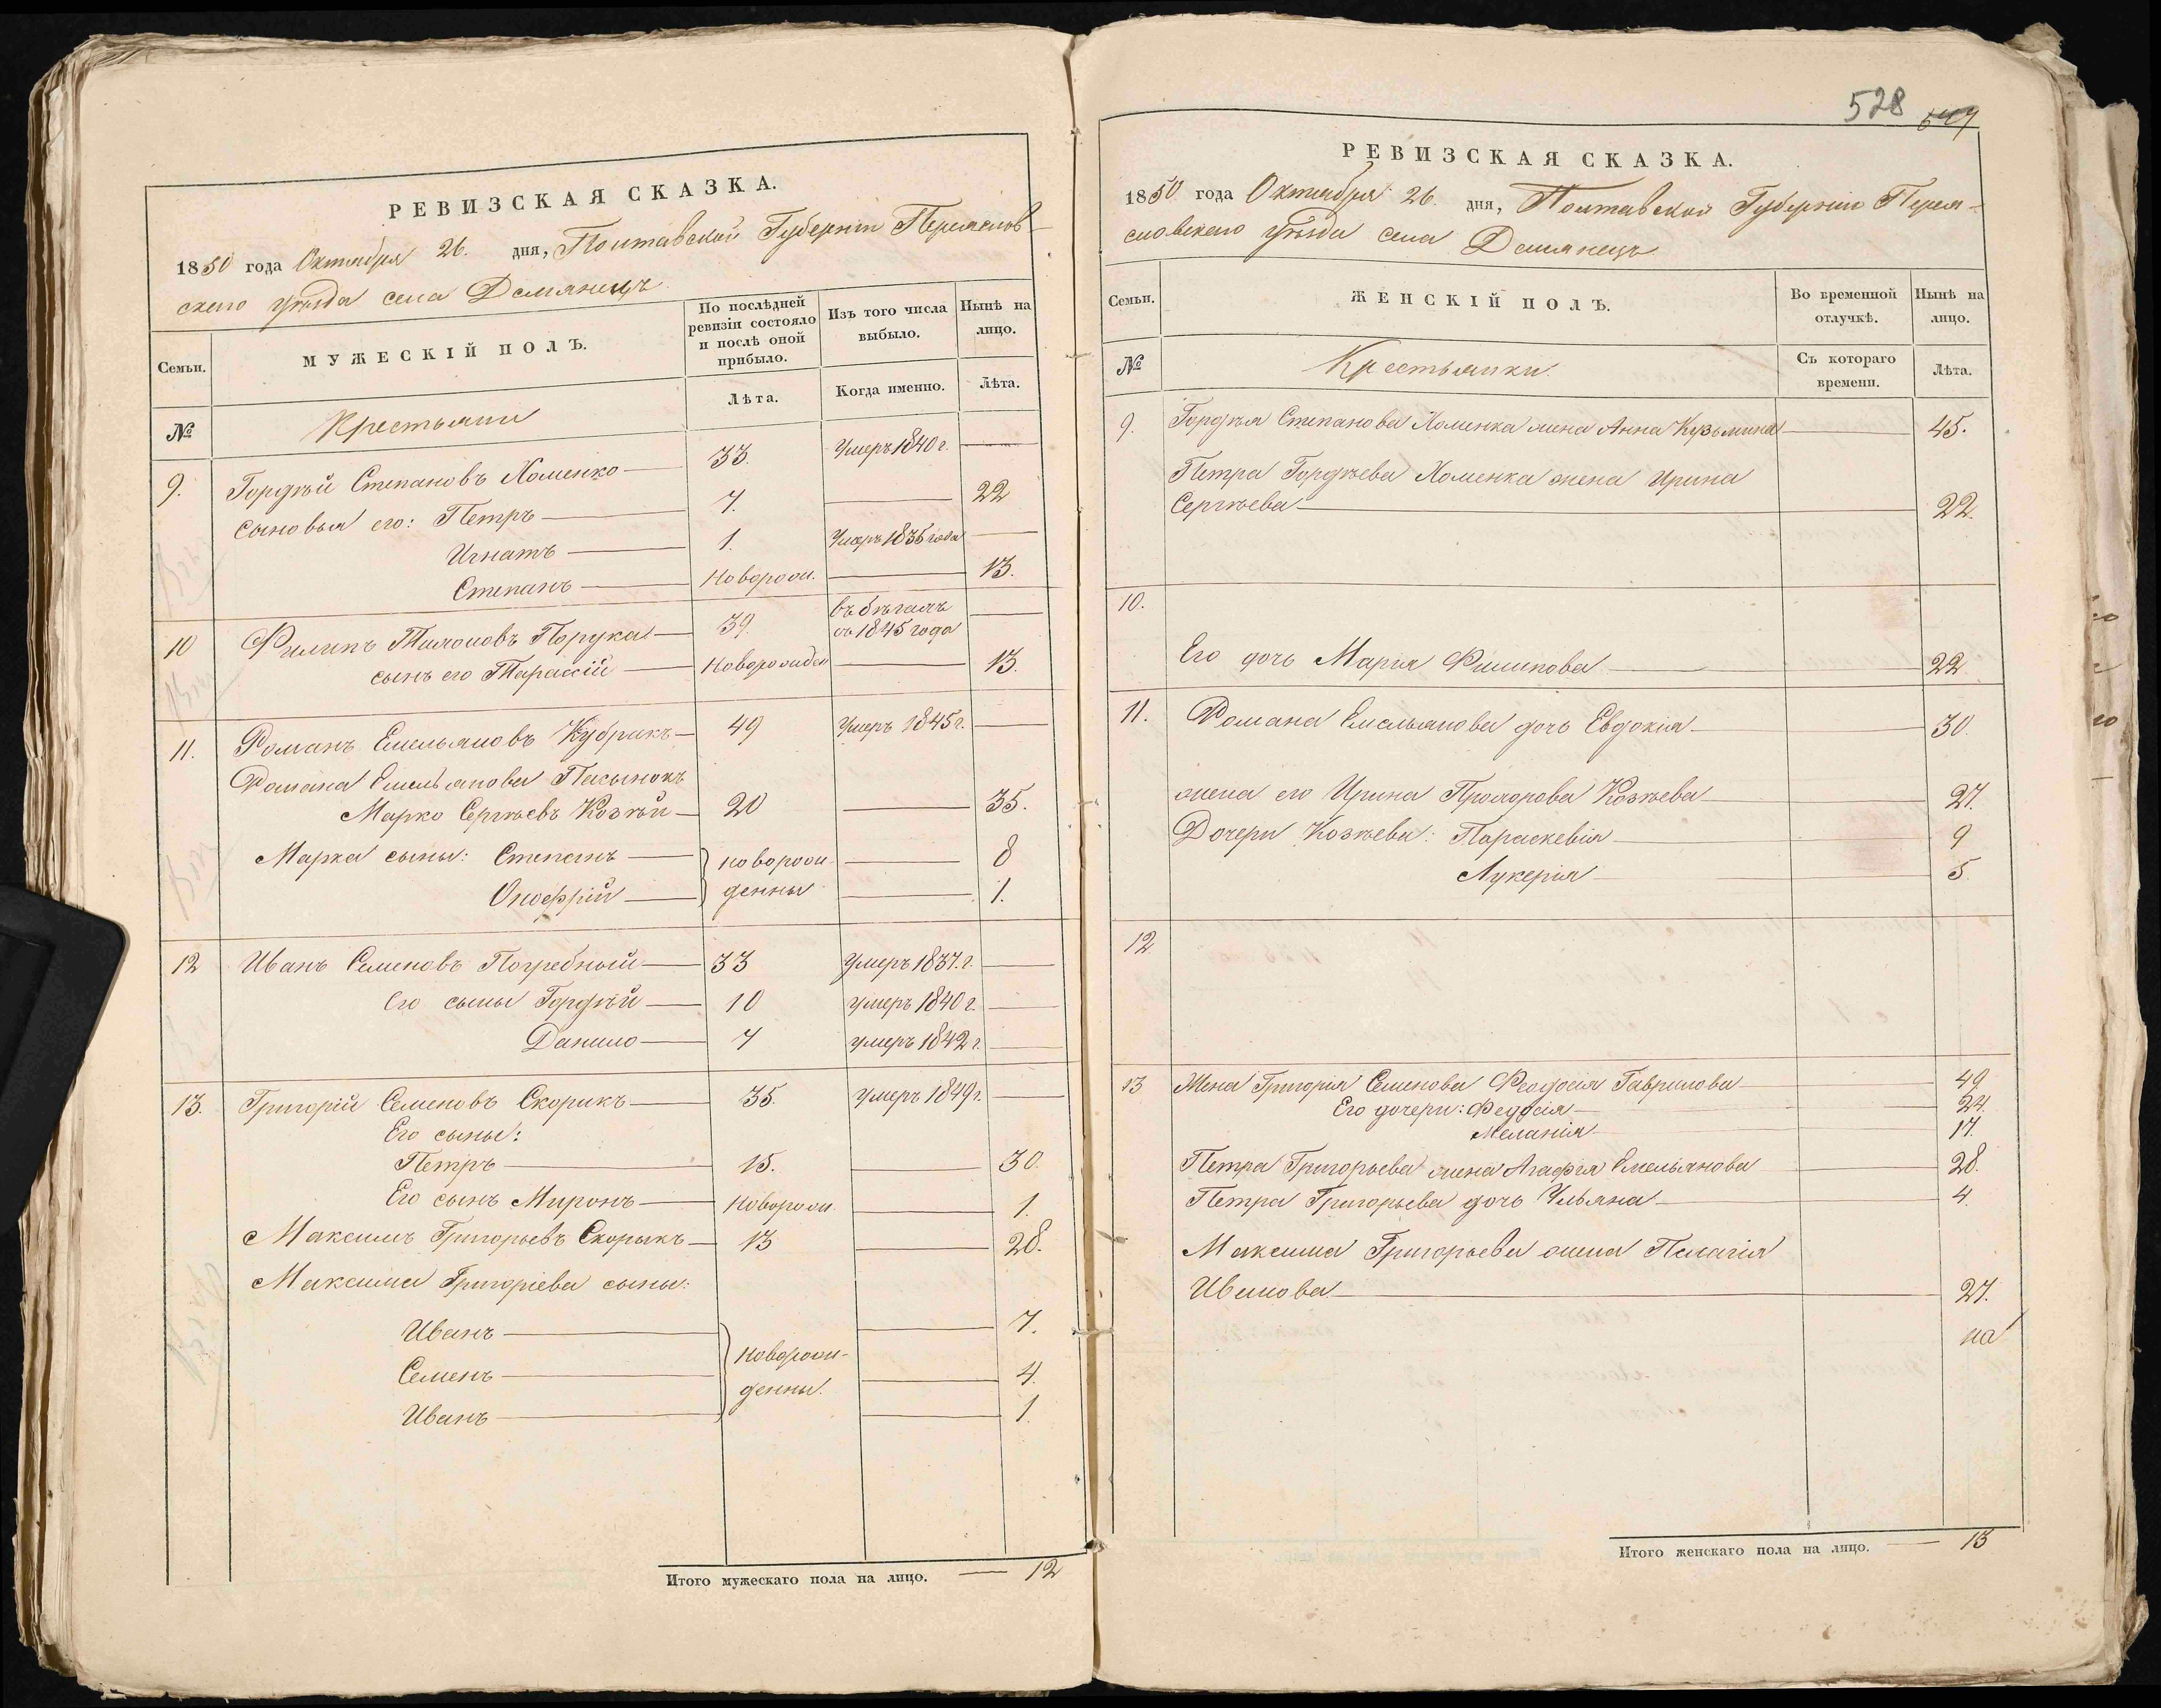 РЕВИЗСКАЯ СКАЗКА.
1850 года Октября 26. дня, Полтавской Губернiи Переяслов-
скаго уѣзда села Демянецъ
Семьи. МУЖЕСКІЙ ПОЛЪ. По послѣдней ревизіи состояло и послѣ оной прибыло. Изъ того числа выбыло. Нынѣ на лицо.
№ Крестьяни Лѣта. Когда именно. Лѣта.
9. Гордѣй Степановъ Хоменко 33. Умеръ 1840 г.
сыновья его: Петръ 7. 22
Игнатъ 1. Умеръ 1836 года
Степанъ Новорож. 13.
10 Филипъ Тихоновъ Порукa 39. въ бѣгахъ съ 1845 года
сынъ его Тарасій Новорожден 13.
11. Романъ Емельяновъ Кубракъ 49 Умеръ 1845 г.
Романа Емельянова Пасынокъ
Марко Сергѣевъ Козѣй 20 35.
Марка сыны: Степанъ новорож- 8
Онофрій денны 1.
12 Иванъ Семеновъ Погребный 33 Умеръ 1837. г.
Его сыны Гордѣй 10 умеръ 1840 г.
Данило 7 умеръ 1842 г.
13. Григорій Семеновъ Скорикъ 35. Умеръ 1849 г.
Его сыны:
Петръ 15. 30.
Его сынъ Миронъ Новорож. 1.
Максимъ Григорьевъ Скорыкъ 13 28.
Максима Григоріева сыны:
Иванъ 7.
Семенъ новорож- 4.
денны.
Иванъ 1.
Итого мужескаго пола на лицо. 12
528
РЕВИЗСКАЯ СКАЗКА.
1850 года Октября 26. дня, Полтавской Губерніи Перея-
словскаго уѣзда села Демянецъ
Семьи. ЖЕНСКІЙ ПОЛЪ. Во временной отлучкѣ. Нынѣ на лицо.
№ Крестьянки. Съ котораго времени. Лѣта.
9. Гордѣя Степанова Хоменка жена Анна Кузьмина 45.
Петра Гордѣева Хоменка жена Ирина
Сергѣева 22.
10.
Его дочь Марія Филипова 22
11. Романа Емельянова дочь Евдокія 30.
жена его Ирина Прохорова Козѣева 27.
Дочери Козѣева: Параскевія 9
Лукерія 5.
12.
13 Жена Григорія Семенова Феодосія Гаврилова 49
Его дочери: Федосія 24.
Меланія 17.
Петра Григорьева жена Агафія Емельянова 28.
Петра Григорьева дочь Ульяна 4.
Максима Григорьева жена Пелагія
Иванова 27.
на
Итого женскаго пола на лицо. 13